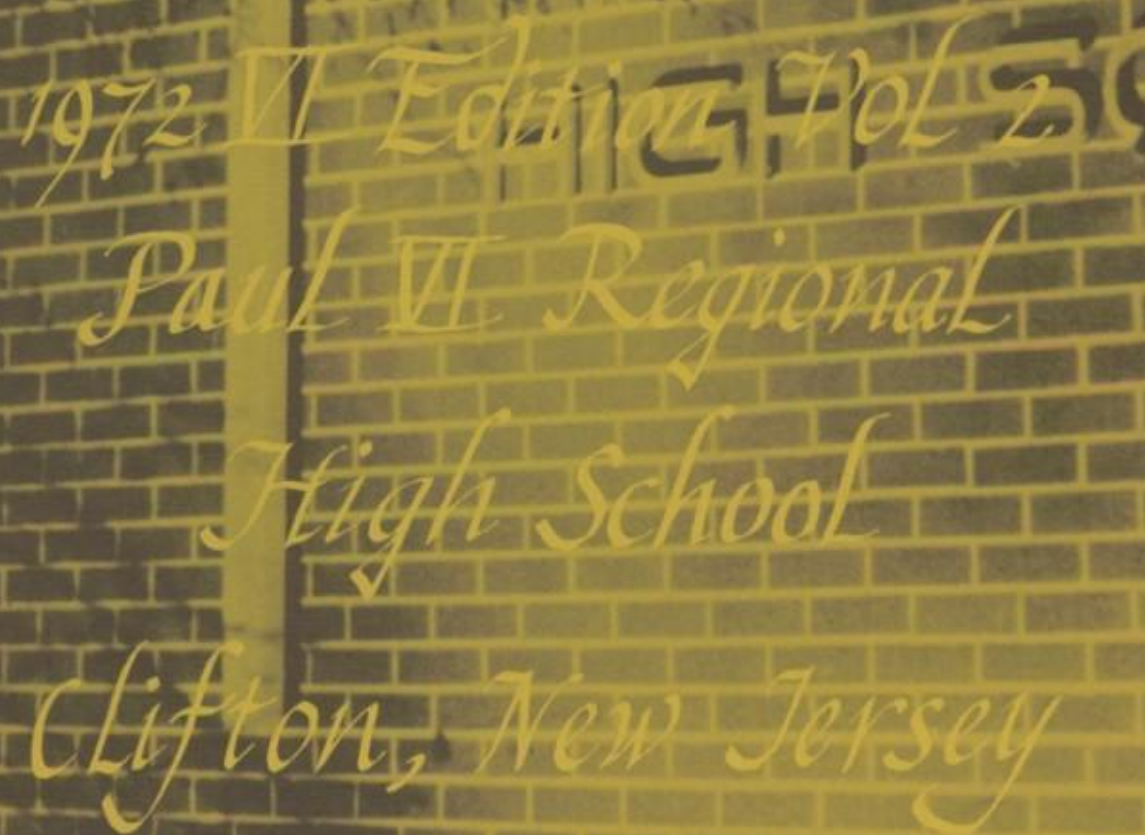 1972 VI Edition Vol 2
HIGH SC
Paul VI Regional
High School
Clifton, New Jersey